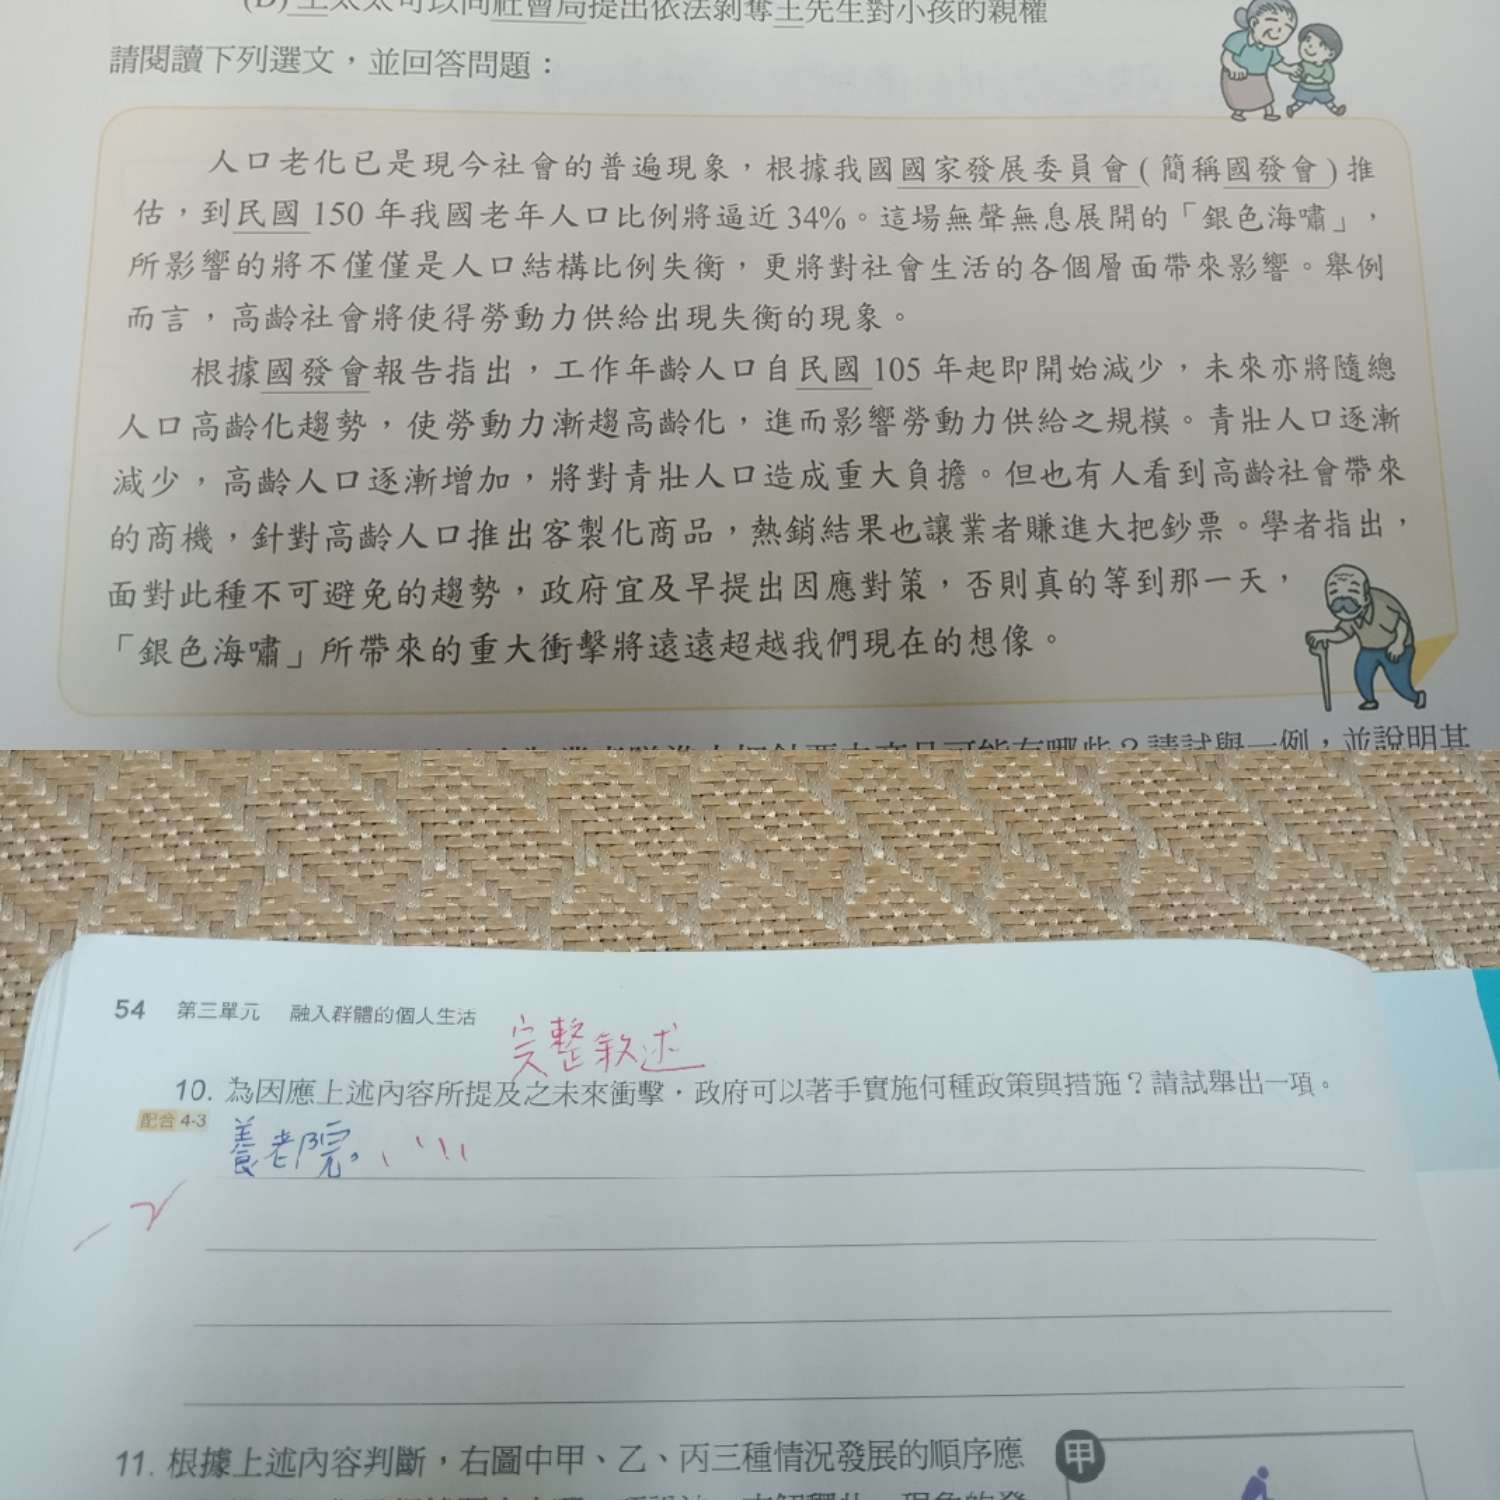 (D) 王太太可以向社會局提出依法剝奪王先生對小孩的親權
請閱讀下列選文，並回答問題：
人口老化已是現今社會的普遍現象，根據我國國家發展委員會(簡稱國發會)推
估，到民國150年我國老年人口比例將逼近34%。這場無聲無息展開的「銀色海嘯」，
所影響的將不僅僅是人口結構比例失衡，更將對社會生活的各個層面帶來影響。舉例
而言，高齡社會將使得勞動力供給出現失衡的現象。
根據國發會報告指出，工作年齡人口自民國105年起即開始減少，未來亦將隨總
人口高齡化趨勢，使勞動力漸趨高齡化，進而影響勞動力供給之規模。青壯人口逐漸
減少，高齡人口逐漸增加，將對青壯人口造成重大負擔。但也有人看到高齡社會帶來
的商機，針對高齡人口推出客製化商品，熱銷結果也讓業者賺進大把鈔票。學者指出，
面對此種不可避免的趨勢，政府宜及早提出因應對策，否則真的等到那一天，
「銀色海嘯」所帶來的重大衝擊將遠遠超越我們現在的想像。
可能有哪些？請試舉一例，並說明其
54 第三單元 融入群體的個人生活
完整敘述
10. 為因應上述內容所提及之未來衝擊，政府可以著手實施何種政策與措施？請試舉出一項。
配合4-3
養老院。
-2
11. 根據上述內容判斷，右圖中甲、乙、丙三種情況發展的順序應
甲